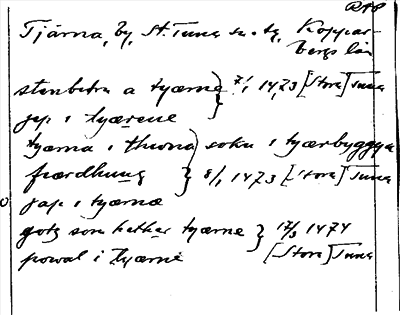 DAP
Tjärna, by, St. Tuna sn. tg, Koppar-
bergs län
stenbetra a tyærne } 7/1 1473 [Stora] Tuna
jep i tyærene
tyærna i thwna sokn i tyærbyggya
færdhung } 8/1 1473 [Stora] Tuna
jap i tyærnæ
gotz som hethær tyærne } 17/3 1474
powal i tyærne [Stora] Tuna